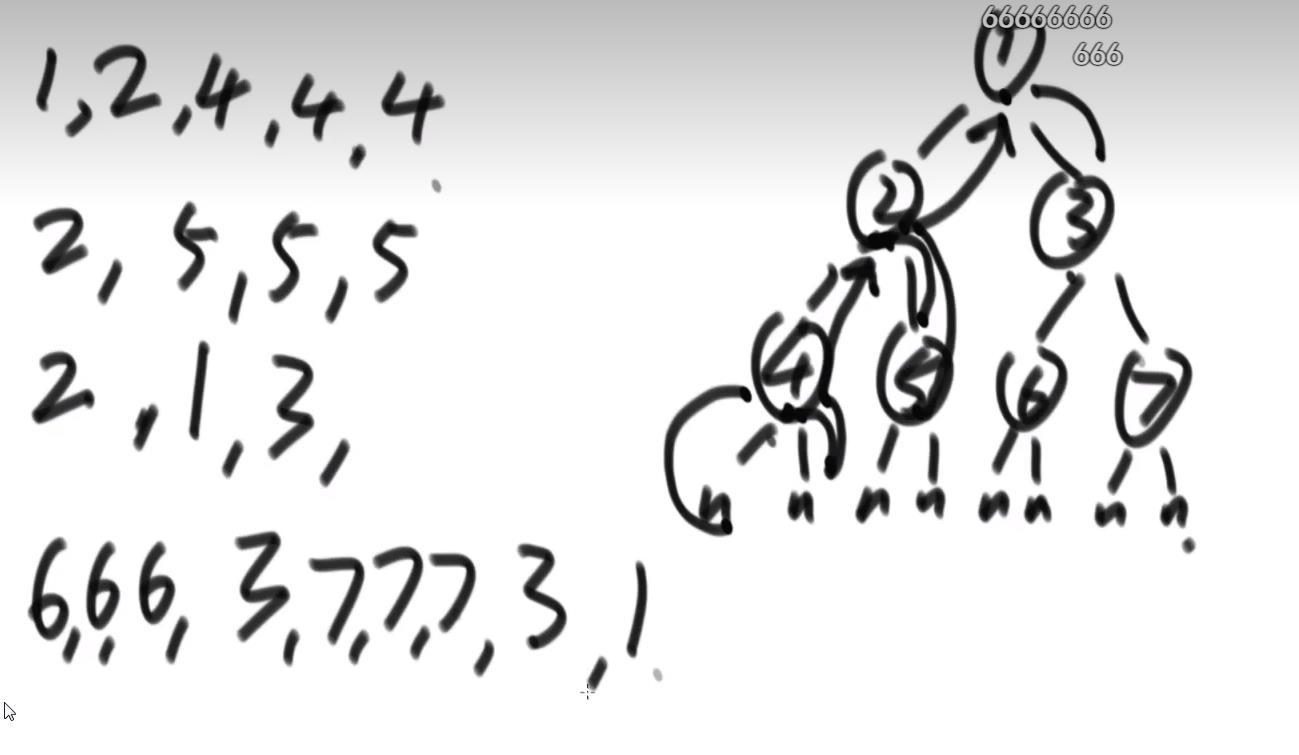 66666666
666
1,2,4,4,4
2,5,5,5
2,1,3,
6,6,6,3,7,7,7,3,1
1
2 3
4 5 6 7
n n n n n n n n